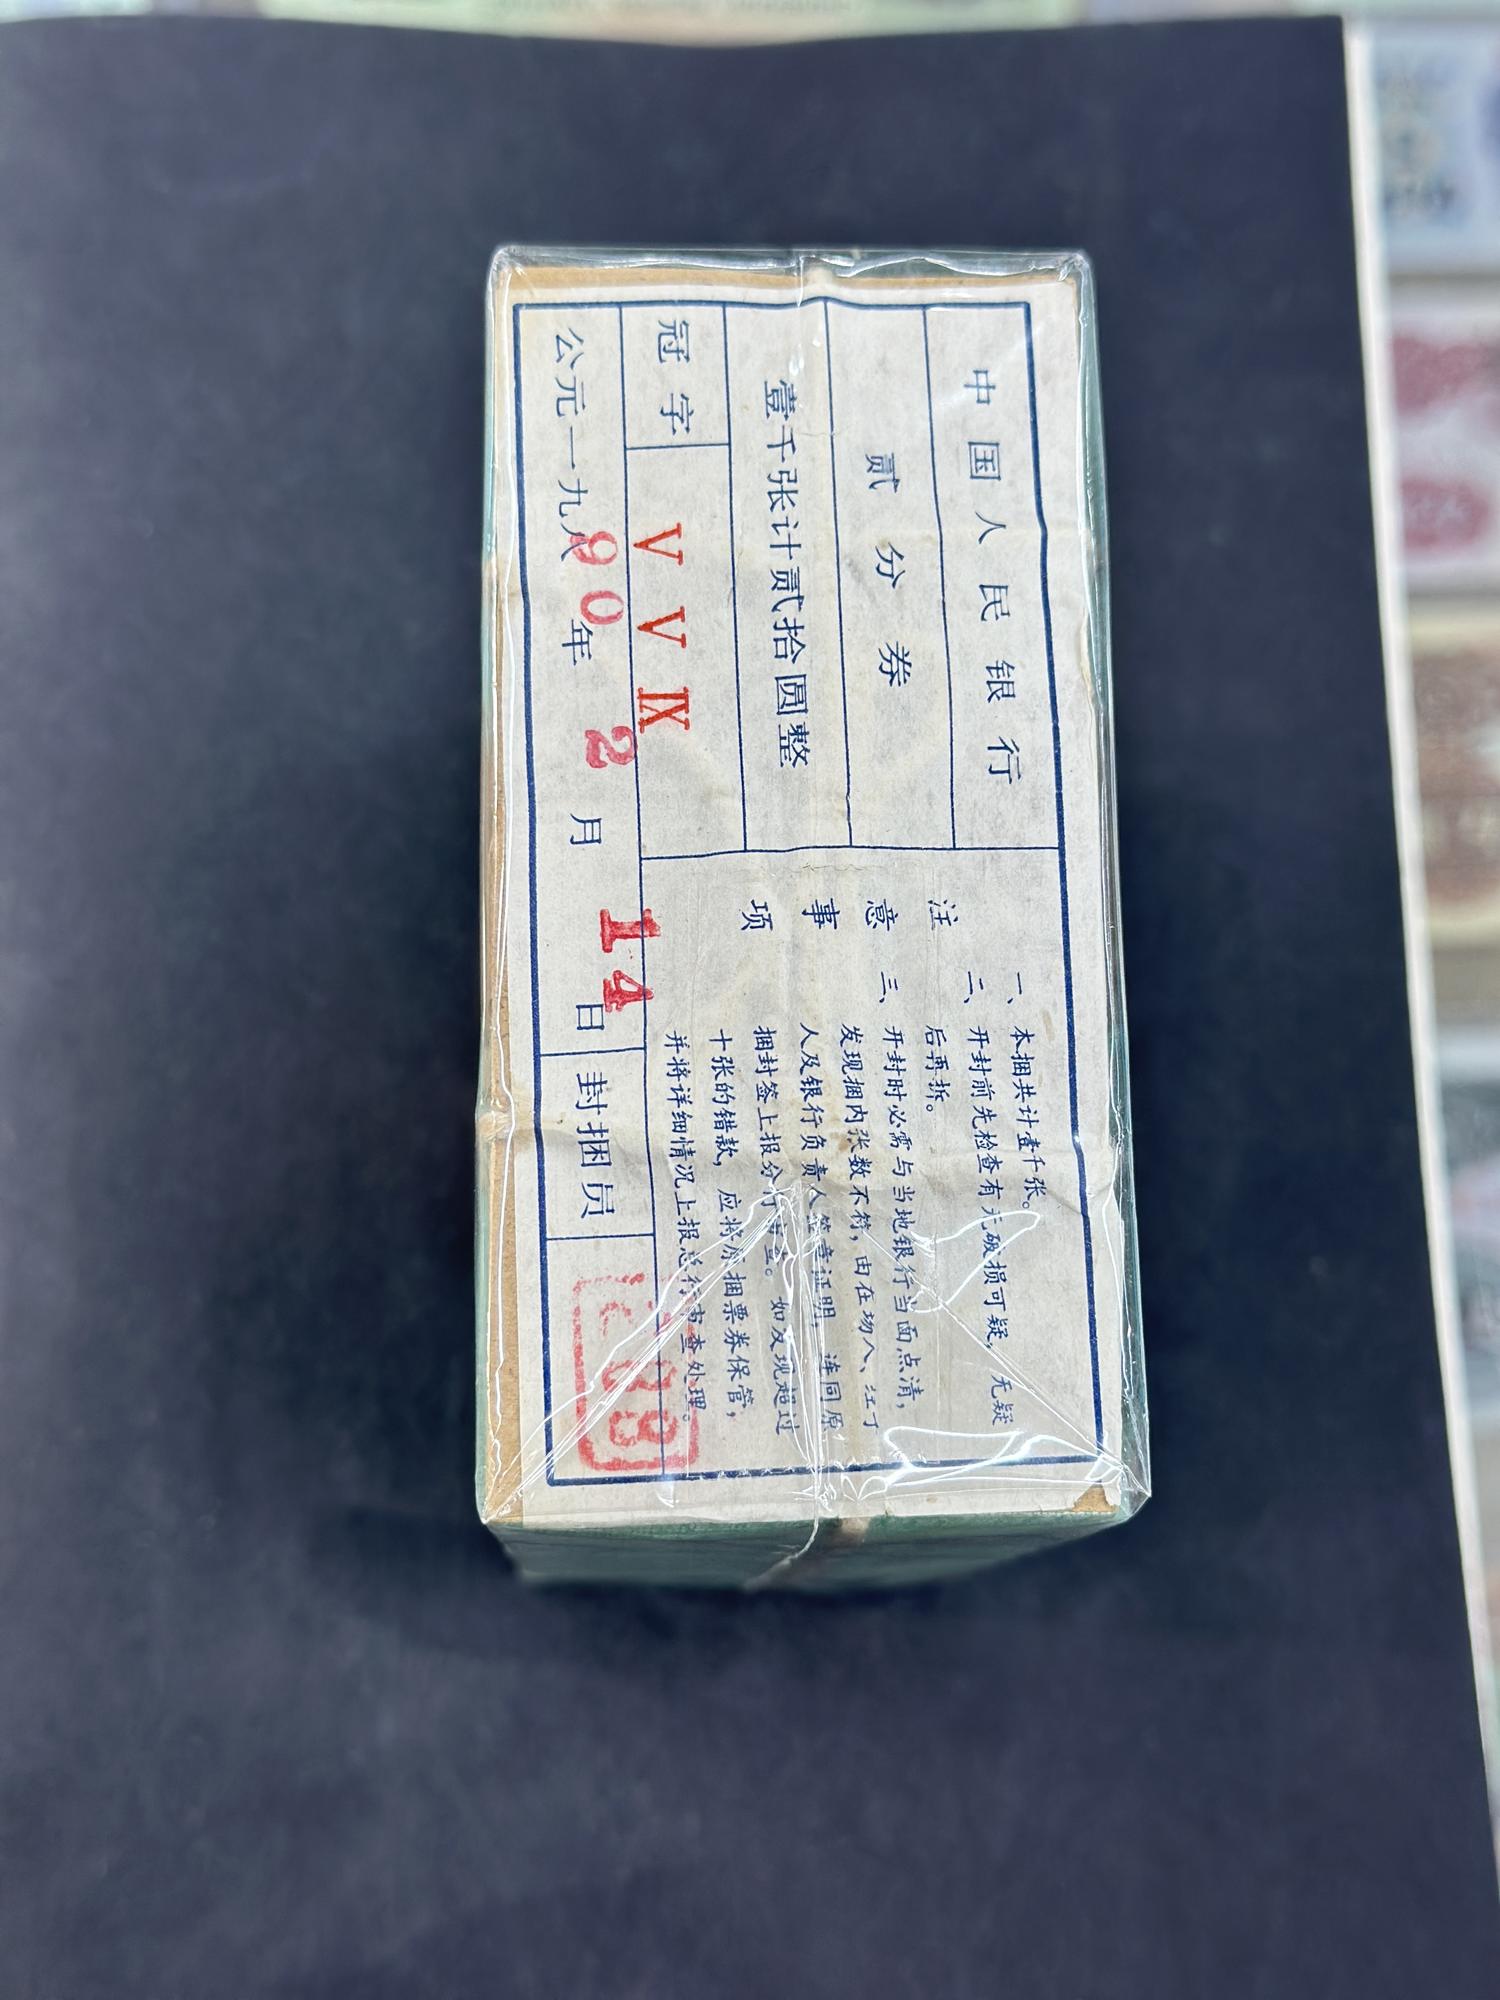 中国人民银行
贰分券
壹千张计贰拾圆整
冠字 V V IX
公元一九八90年2月14日 封捆员
注意事项
一、本捆共计壹千张。
二、开封前先检查有无破损可疑，无疑
后再拆。
三、开封时必需与当地银行当面点清，
发现捆内张数不符，由在场人、
人及银行负责人签章证明，连同原
捆封签上报分行 查。如发现超过
十张的错款，应将原捆票券保管，
并将详细情况上报总行 查处理。